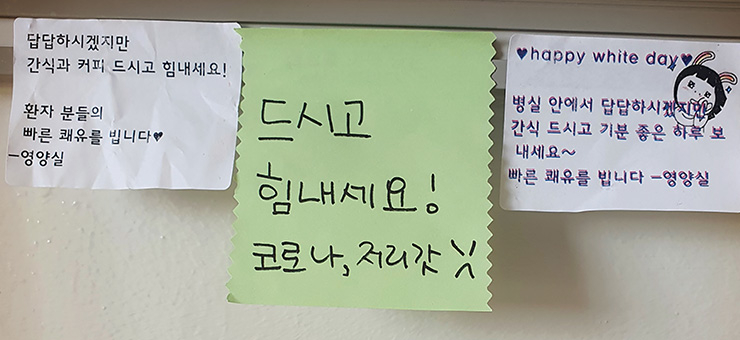 답답하시겠지만
간식과 커피 드시고 힘내세요!
환자 분들의
빠른 쾌유를 빕니다♥
-영양실
드시고
힘내세요!
코로나, 저리갓
♥happy white day♥
병실 안에서 답답하시겠지만
간식 드시고 기분 좋은 하루 보
내세요~
빠른 쾌유를 빕니다 -영양실